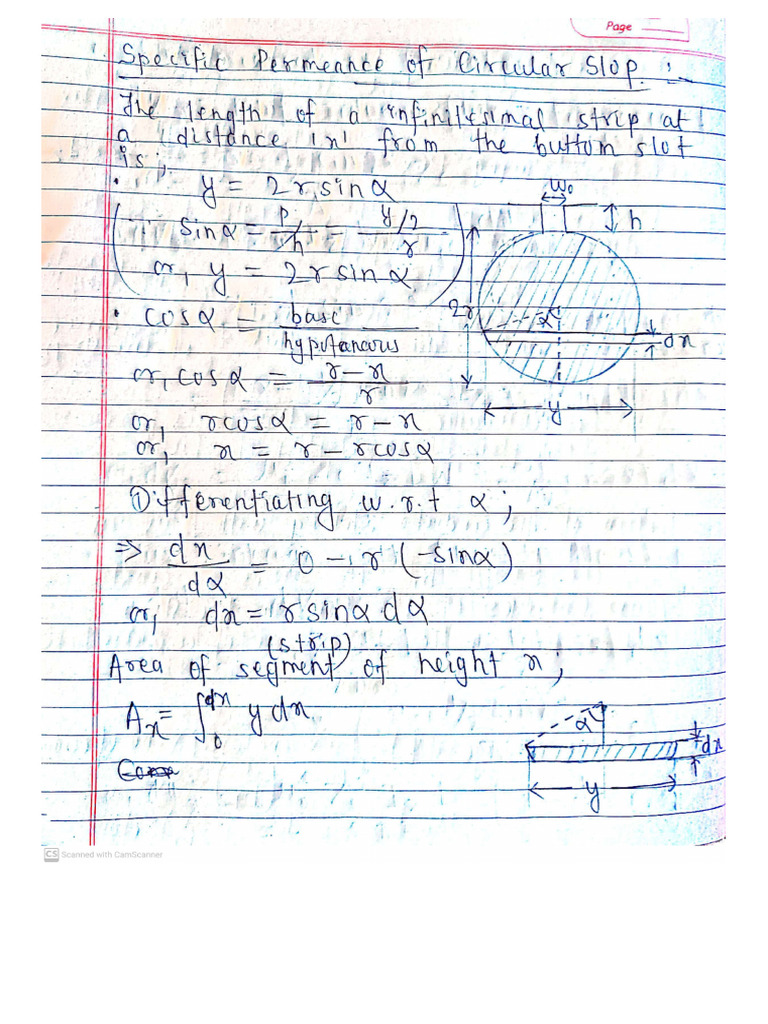 Page
Specific Permeance of Circular Slop :-
The length of a infinitesimal strip at
a distance 'x' from the buttom slot
is;
• y = 2r sinα
(sinα = p/h = (y/2)/r
or, y = 2r sinα)
• cosα = base/hypotanous
or, cosα = (r-x)/r
or, rcosα = r-x
or, x = r-rcosα
W₀
h
2r
α
dx
y
Differentiating w.r.t α;
=> dx/dα = 0 - r (-sinα)
or, dx = r sinα dα
(strip)
Area of segment of height x;
Aₓ = ∫₀^dx y dx
α
dx
y
CS Scanned with CamScanner